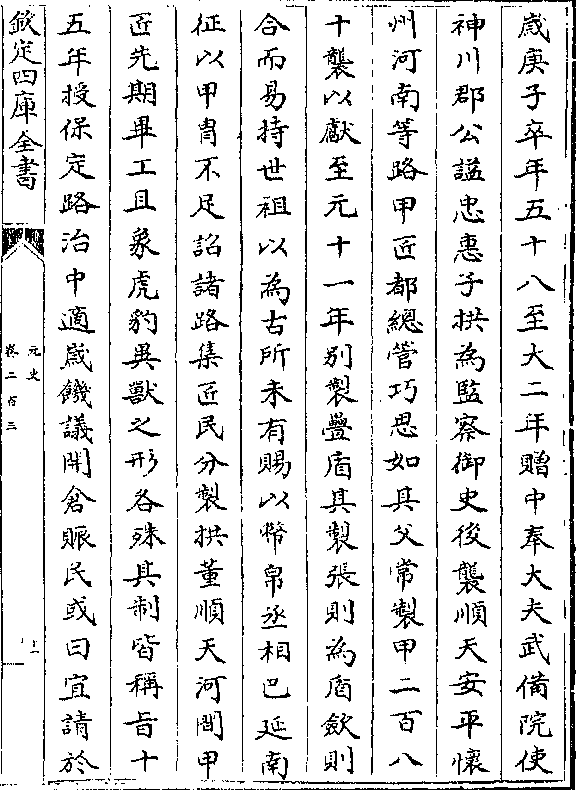 歲庚子卒年五十八至大二年贈中奉大夫武備院使
神川郡公諡忠惠子拱為監察御史後襲順天安平懷
州河南等路甲匠都總管巧思如其父常製甲二百八
十襲以獻至元十一年別製疊盾其製張則為盾歛則
合而易持世祖以為古所未有賜以幣帛丞相巴延南
征以甲胄不足詔諸路集匠民分製拱董順天河間甲
匠先期畢工且象虎豹異獸之形各殊其制皆稱旨十
五年授保定路治中適歲饑議開倉賑民或曰宜請於
欽定四庫全書
元史
卷二百三
十一